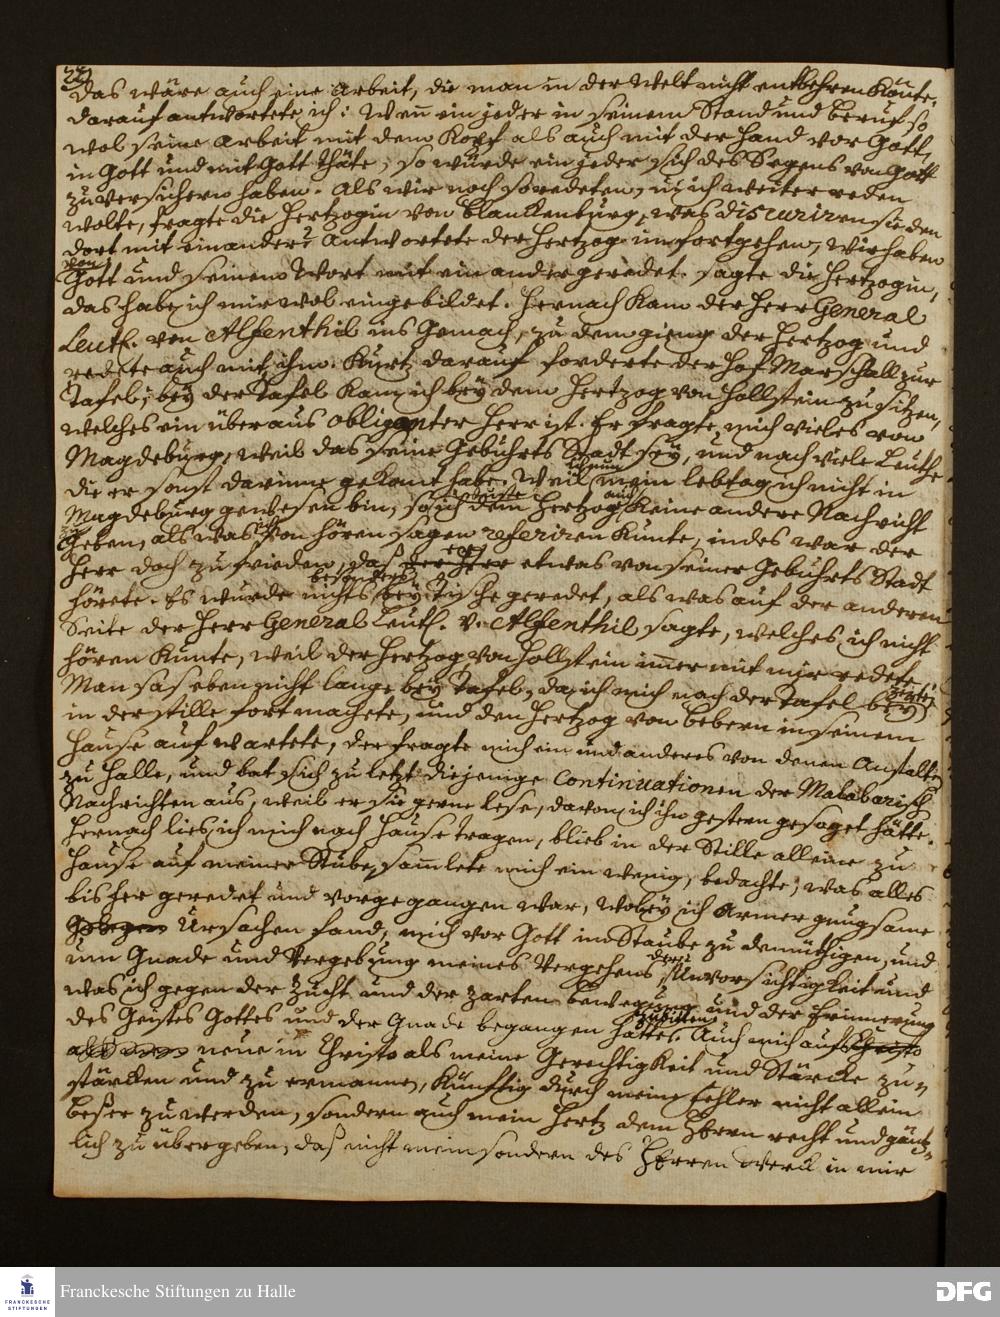 22)
das wäre auch eine Arbeit, die man in der Welt nicht entbehren könte.
darauf antwortete ich: Wenn ein jeder in seinem Stand und Beruf so
wol seine Arbeit mit dem Kopf als auch mit der Hand vor Gott,
in Gott und mit Gott thäte, so würde ein jeder sich des Segens von Gott
zu versichern haben. Als wir noch so redeten, u. ich weiter reden
wolte, fragte die Hertzogin von Blanckenburg, was discuriren sie den
dort mit einander? Antwortete der Hertzog im fortgehen, wir haben
von
Gott und seinem Wort mit ein ander geredet. sagte die Hertzogin,
das habe ich mir wol eingebildet. Hernach kam der Herr General
Leut. von Alfenthil ins Gemach, zu dem gieng der Hertzog und
redete auch mit ihm. Kurtz darauf forderte der Hof Marschall zur
Tafel; bey der Tafel kam ich bey dem Hertzog von Hollstein zu sitzen,
welches ein überaus obliganter Herr ist. Er fragte mich vieles von
Magdeburg, weil das seine Gebuhrts Stadt sey, und noch viele Leuthe
die er sonst darinne gekant habe. Weil mein lebtag ich nicht in
Magdeburg gewesen bin, so ich dem Hertzog keine andere Nachricht
geben, als was ich von hören sagen referiren kunte, indes war der
Herr doch zu frieden, das er etwas von seiner Gebuhrts Stadt
hörete. Es wurde nichts besonders bey Tische geredet, als was auf der anderen
Seite der Herr General Leut. v. Alfenthil sagte, welches ich nicht
hören kunte, weil der Hertzog von Hollstein immer mit mir redete.
Man sas eben nicht lange bey Tafel, da ich mich nach der Tafel bey zeiten
in der stille fort machete, und den Hertzog von Bebern in seinem
Hause auf wartete, der fragte mich ein und anderes von denen Anstalten
zu Halle, und bat sich zu letzt diejenige Continuationen der Malabarisch.
Nachrichten aus, weil er sie gerne lese, davon ich ihm gestern gesaget hätte.
Hernach lies ich mich nach Hause tragen, blieb in der Stille alleine zu
Hause auf meiner Stube, samlete mich ein wenig, bedachte, was alles
bisher geredet und vorgegangen war, wobey ich Armer gnugsame
Ursachen fand, mich vor Gott im Staube zu demüthigen, und
um Gnade und Vergebung meines Vergehens der Unvorsichtigkeit und
was ich gegen der Zucht und der zarten bewegung und der Erinnerung
des Geistes Gottes und der Gnade begangen hätte, zu bitten. Auch mich aufs
neue in Christo als meine Gerechtigkeit und Stärcke zu
stärcken und zu ermannen, künftig durch meine Fehler nicht allein
beßer zu werden, sondern auch mein Hertz dem Herrn recht und gäntz-
lich zu übergeben, das nicht mein sondern des Herren werck in mir
Franckesche Stiftungen zu Halle
FRANCKESCHE
STIFTUNGEN
DFG